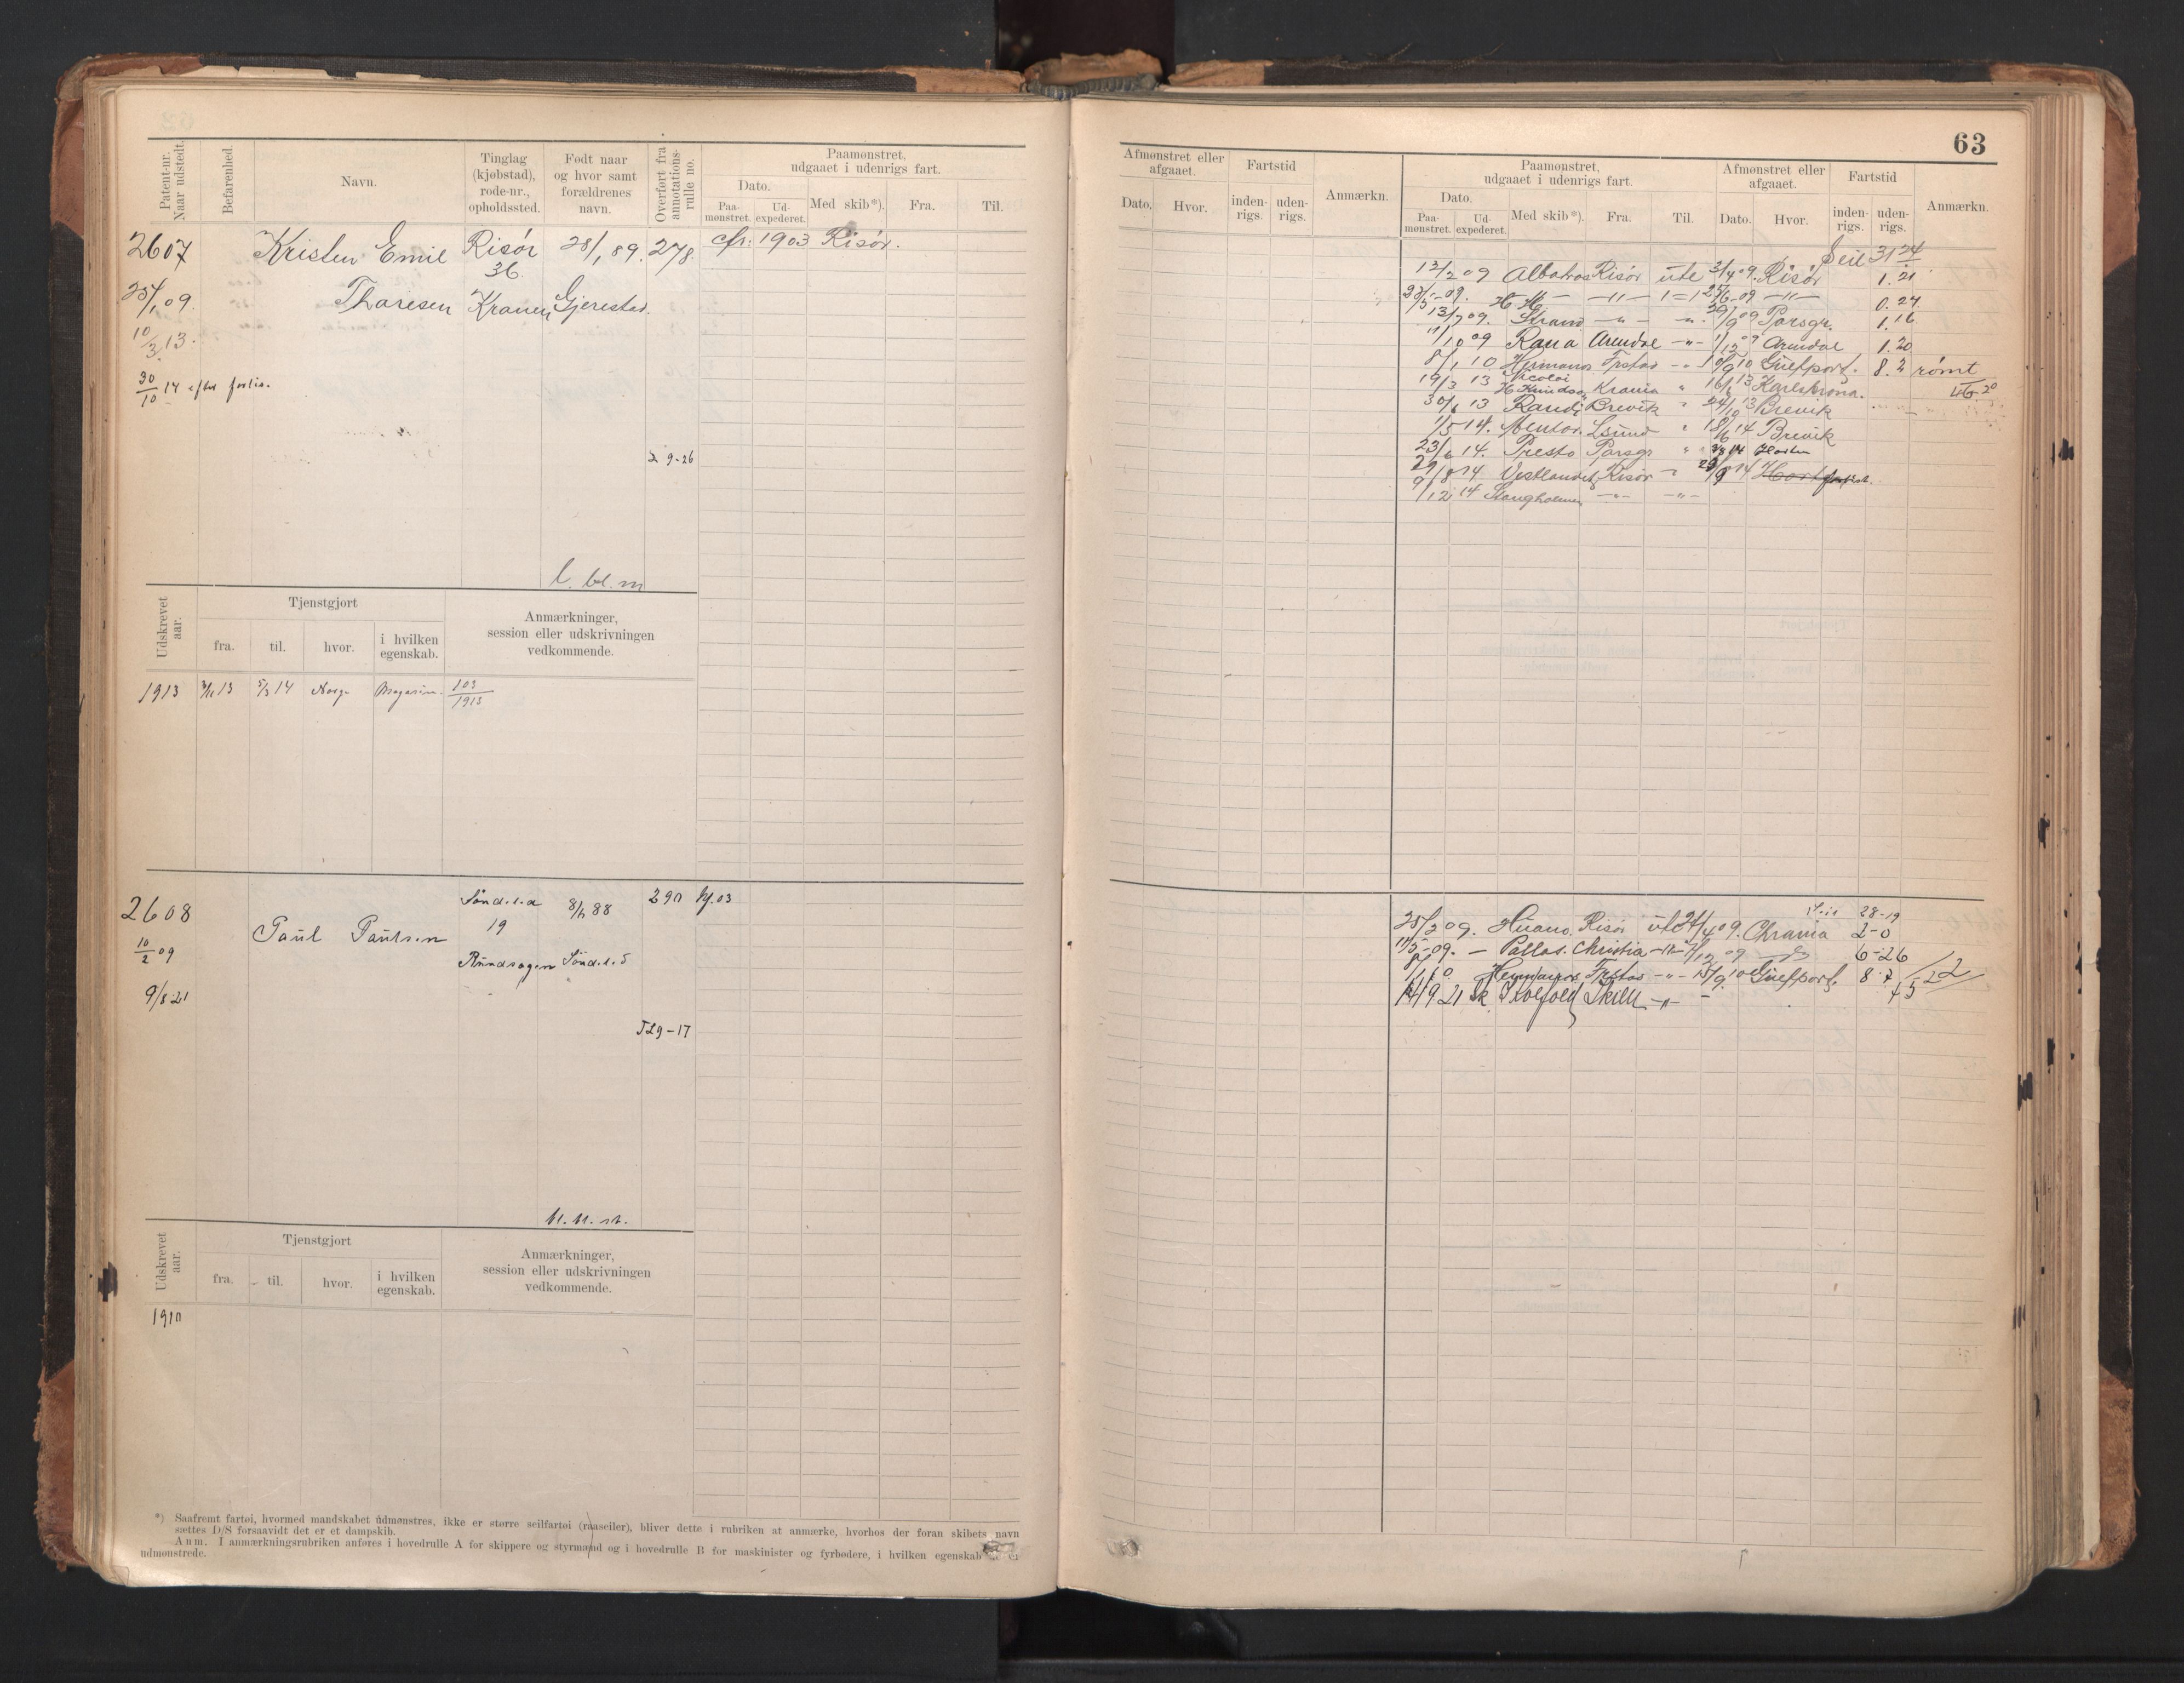 63
Patent-nr. Naar udstedt.
Befarenhed.
Navn.
Tinglag (kjøbstad), rode-nr., opholdssted.
Født naar og hvor samt forældrenes navn.
Overført fra annotations-rulle no.
Paamønstret, udgaaet i udenrigs fart.
Dato.
Paa-mønstret.
Ud-expederet.
Med skib*).
Fra.
Til.
2607 Kristen Emil Risør 28/1 89. 278 cfr: 1903 Risør.
36
25/1 09. Thoresen Kranen Gjerestad.
10/3 13.
30/10 14 efter forlis.
9-26
Udskrevet aar.
Tjenstgjort
fra. til. hvor. i hvilken egenskab.
Anmærkninger, session eller udskrivningen vedkommende.
1913 13 5/3 14 Norge 103/1913
2608 Paul Paulsen 290
19
10/2 09
9/8 21
9-17
Udskrevet aar.
Tjenstgjort
fra. til. hvor. i hvilken egenskab.
Anmærkninger, session eller udskrivningen vedkommende.
1910
*) Saafremt fartøi, hvormed mandskabet udmønstres, ikke er større seilfartøi (raaseiler), bliver dette i rubriken at anmærke, hvorhos der foran skibets navn
sættes D/S forsaavidt det er et dampskib.
Anm. I anmærkningsrubriken anføres i hovedrulle A for skippere og styrmænd og i hovedrulle B for maskinister og fyrbødere, i hvilken egenskab de er
udmønstrede.
Afmønstret eller afgaaet.
Dato. Hvor.
Fartstid
inden-rigs. uden-rigs.
Anmærkn.
Paamønstret, udgaaet i udenrigs fart.
Dato.
Paa-mønstret. Ud-expederet. Med skib*). Fra. Til.
Afmønstret eller afgaaet.
Dato. Hvor.
Fartstid
inden-rigs. uden-rigs.
Anmærkn.
Seil 31 24
13/2 09 Albatros Risør ute 3/4 09. Risør 1.21
-09. -"- -09 -"- 0.27
13/7 09. Strand -"- -"- 29/9 09 Porsgr. 1.16
11/10 09 Rana Arendal -"- 1/12 09 Arendal 1.20
8/1 10 Hermanos Frstad -"- 10/9 10 Gulfport. 8.2 rømt
19/3 13 Nicolai H Knudsen Krania " 16/6 13 Karlskrona. 46-20
30/6 13 Randi Brevik " 24/10 13 Brevik
1/5 14. Mentor. Lsund " 18/6 14 Brevik
23/6 14. Presto Porsgr " 14 Horten
29/8 14 Vestlandet Risør " 29/9 14 forlist.
9/12 14 Stangholmen -"- -"-
Seil 28-19
25/2 09. Huano. Risør ute 24/4 09. Chrania 2-0
11/5-09. - Pallas. Christia -"- 09 6-26
8/1 10. Hermanos Frstad -"- 15/9 10 Gulfport. 8-7
21 Skolfold Skien -"-